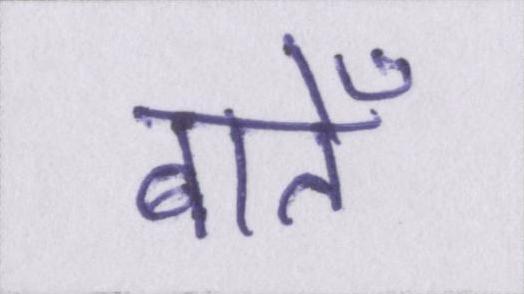 बातेँ